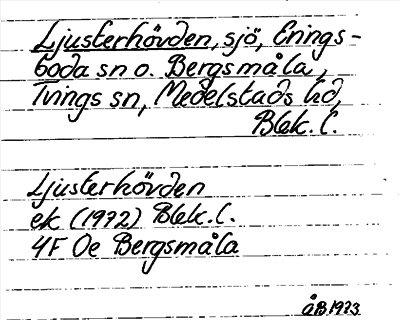 Ljusterhövden, sjö, Erings-
boda sn o. Bergsmåla,
Tvings sn, Medelstads hd,
Blek. l.
Ljusterhövden
ek (1972) Blek. l.
4F 0e Bergsmåla
åB 1973